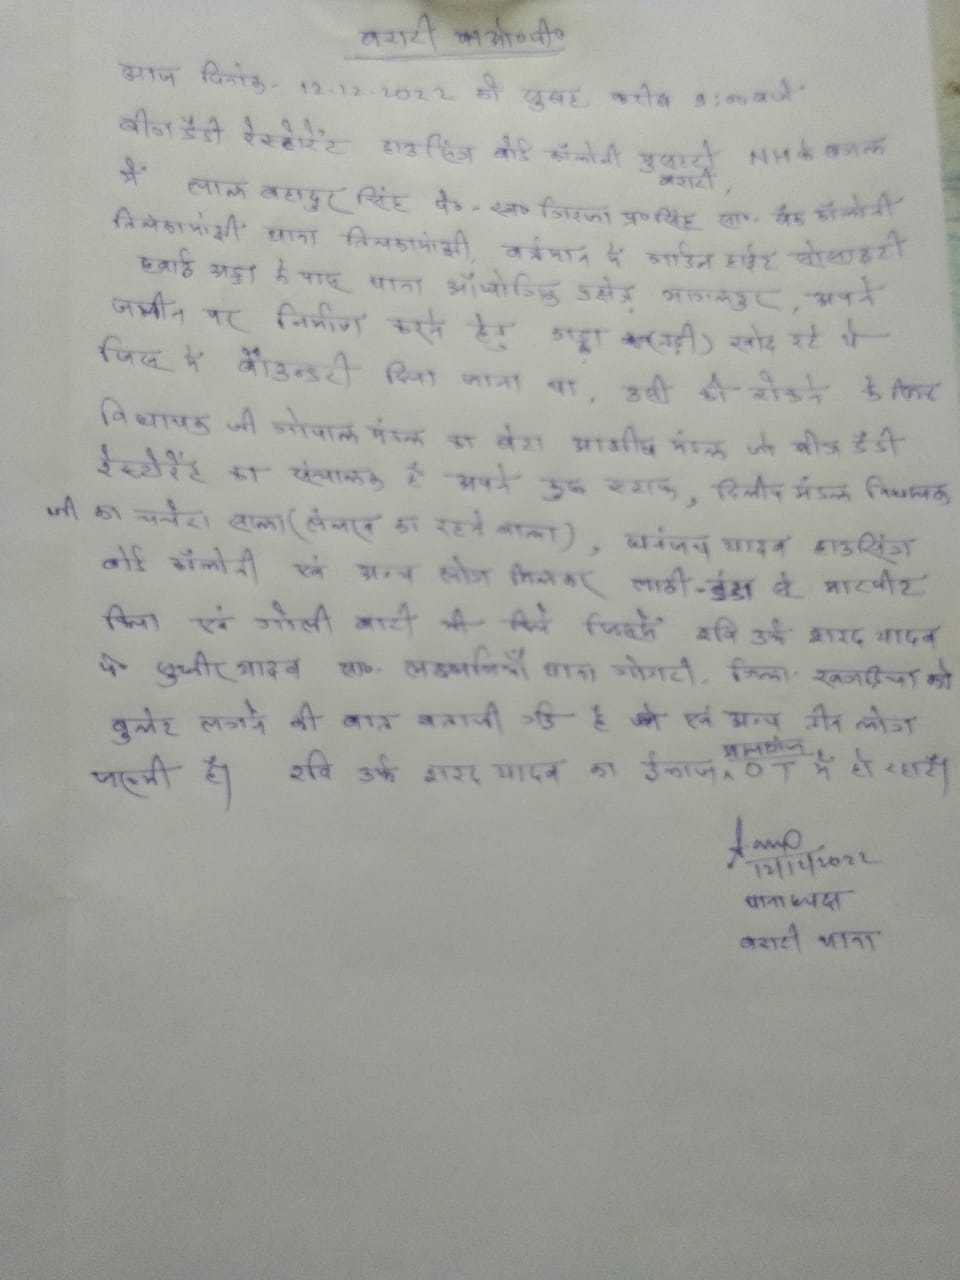 बरारी का ओ०पी०
आज दिनांक- 12.12.2022 को सुबह करीब 9:00 बजे
बीग डैडी रेस्टोरेंट हाउसिंग बोर्ड कॉलोनी बरारी, NH के बगल
में लाल बहादुर सिंह पे०- स्व० गिरजा प्र० सिंह सा०- बैंक कॉलोनी
तिलकामांझी थाना तिलकामांझी, वर्तमान में गार्डन हाईट सोसाइटी
हवाई अड्डा के पास थाना औद्योगिक क्षेत्र भागलपुर, अपने
जमीन पर निर्माण करने हेतु गड्ढा खोद रहे थे
जिस में बाँउन्डरी दिया जाना था, उसी को रोकने के लिए
विधायक जी गोपाल मंडल का बेटा आशीष मंडल जो बीग डैडी
रेस्टोरेंट का संचालक है अपने कुछ स्टाफ, दिलीप मंडल विधायक
जी का चचेरा साला ( का रहने वाला), धनंजय यादव हाउसिंग
बोर्ड कॉलोनी एवं अन्य लोग मिलकर लाठी-डंडा से मारपीट
किया एवं गोली बारी भी किये जिसमें रवि उर्फ शरद यादव
पे० सुधीर यादव सा०- थाना गोगरी, जिला- खगड़िया को
बुलेट लगने की बात बतायी गई है एवं अन्य तीन लोग
जख्मी हैं। रवि उर्फ शरद यादव का ईलाज मायागंज OT में हो रहा है।
12/12/2022
थानाध्यक्ष
बरारी थाना